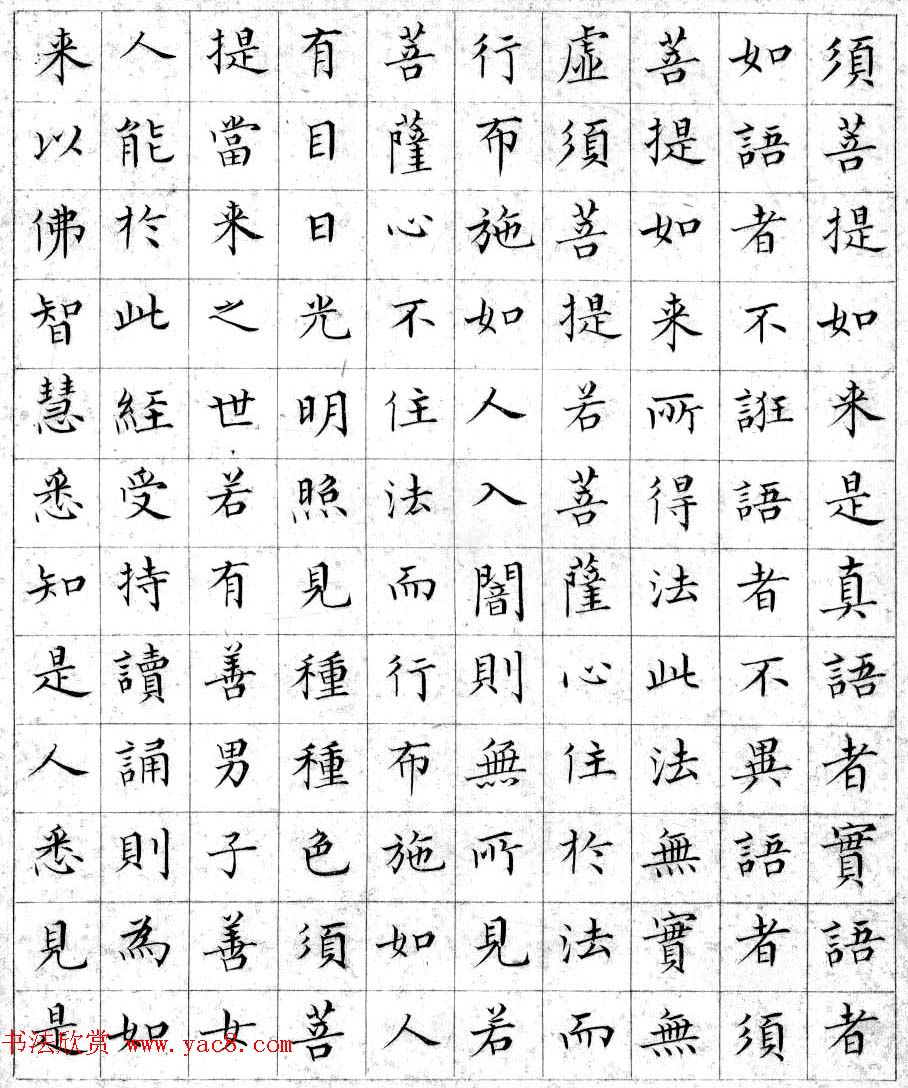 須菩提如来是真語者實語者
如語者不誑語者不異語者須
菩提如来所得法此法無實無
虛須菩提若菩薩心住於法而
行布施如人入闇則無所見若
菩薩心不住法而行布施如人
有目日光明照見種種色須菩
提當来之世若有善男子善女
人能於此經受持讀誦則為如
来以佛智慧悉知是人悉見是
书法欣赏 www.yac8.com